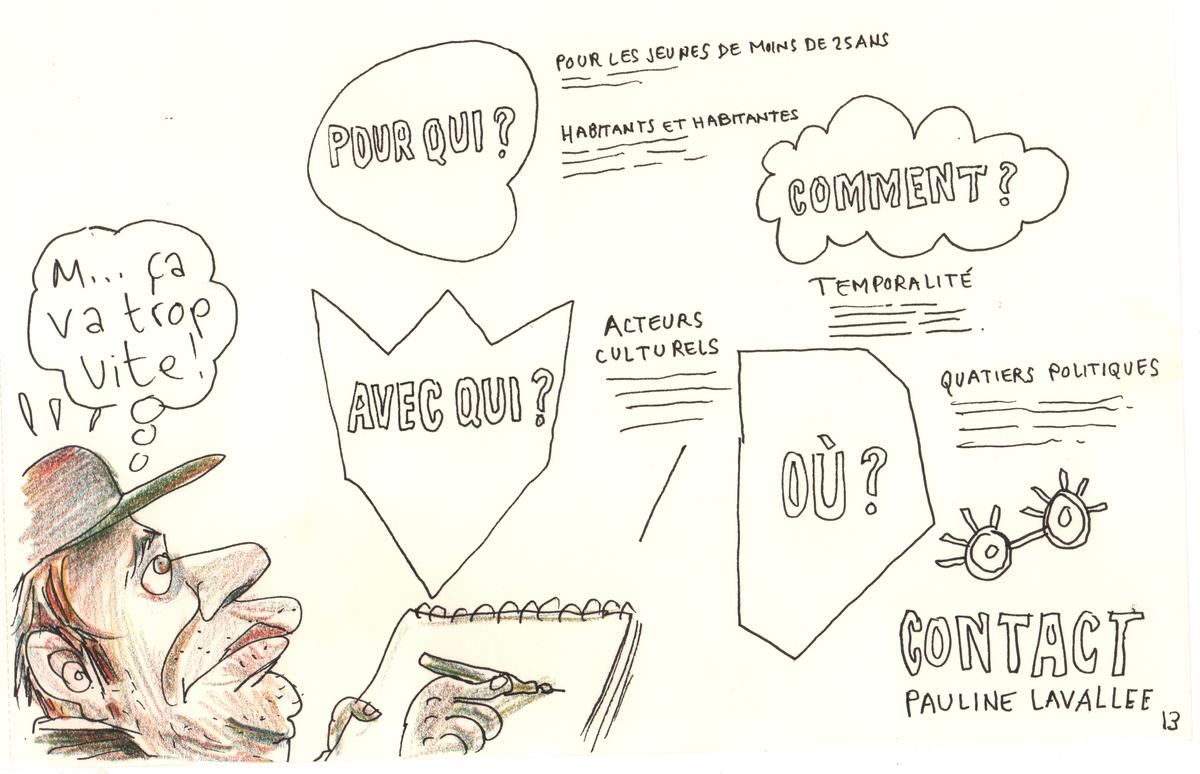 POUR QUI ?
POUR LES JEUNES DE MOINS DE 25 ANS
HABITANTS ET HABITANTES
COMMENT ?
TEMPORALITÉ
M... ça
va trop
vite!
AVEC QUI ?
ACTEURS
CULTURELS
OÙ ?
QUATIERS POLITIQUES
CONTACT
PAULINE LAVALLEE
13